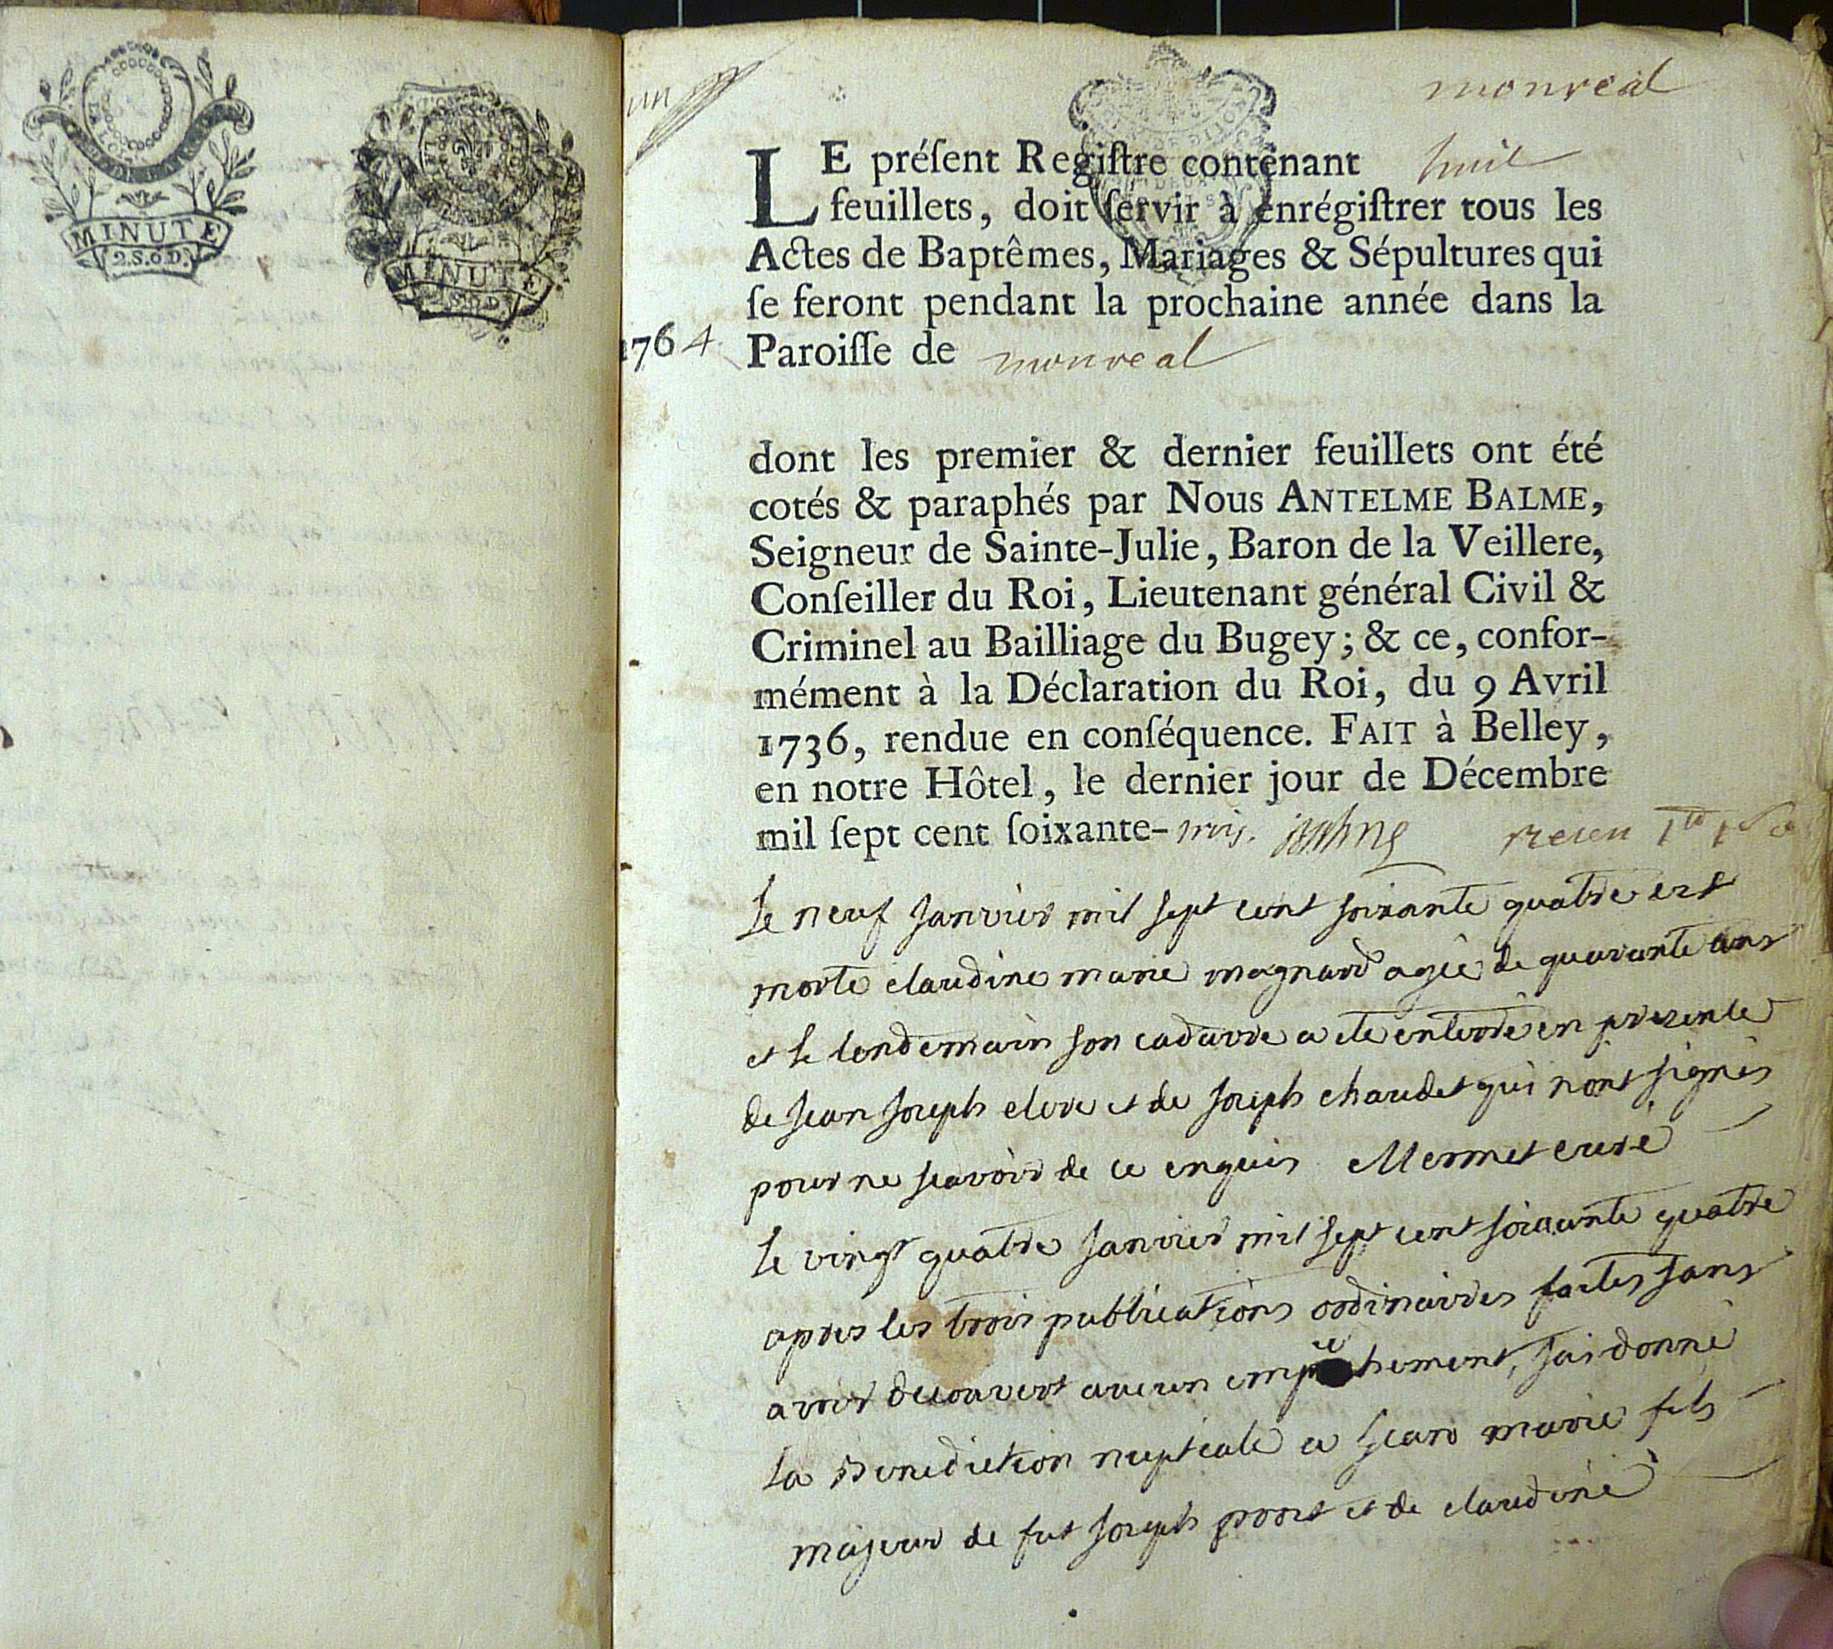 MINUTE
2.S.6.D.
MINUTE
un
monreal
LE préſent Regiſtre contenant huit
feuillets, doit ſervir à enrégiſtrer tous les
Actes de Baptêmes, Mariages & Sépultures qui
ſe feront pendant la prochaine année dans la
1764. Paroiſſe de monreal
dont les premier & dernier feuillets ont été
cotés & paraphés par Nous ANTELME BALME,
Seigneur de Sainte-Julie, Baron de la Veillere,
Conſeiller du Roi, Lieutenant général Civil &
Criminel au Bailliage du Bugey; & ce, confor-
mément à la Déclaration du Roi, du 9 Avril
1736, rendue en conſéquence. FAIT à Belley,
en notre Hôtel, le dernier jour de Décembre
mil ſept cent ſoixante-trois.
le neuf Janvier mil sept cent soixante quatre est
morte claudine marie magnard agée de quarante ans
et le lendemain son cadavre a ete enterré en presence
de Jean Joseph et de Joseph chaudet qui nont signés
pour ne scavoir de ce enquis Mermet curé
le vingt quatre Janvier mil sept cent soixante quatre
apres les trois publications ordinaires faites sans
avoir decouvert aucun empechement, Jai donné
la Benediction nuptiale a Jean marie fils
majeur de fut Joseph et de claudine